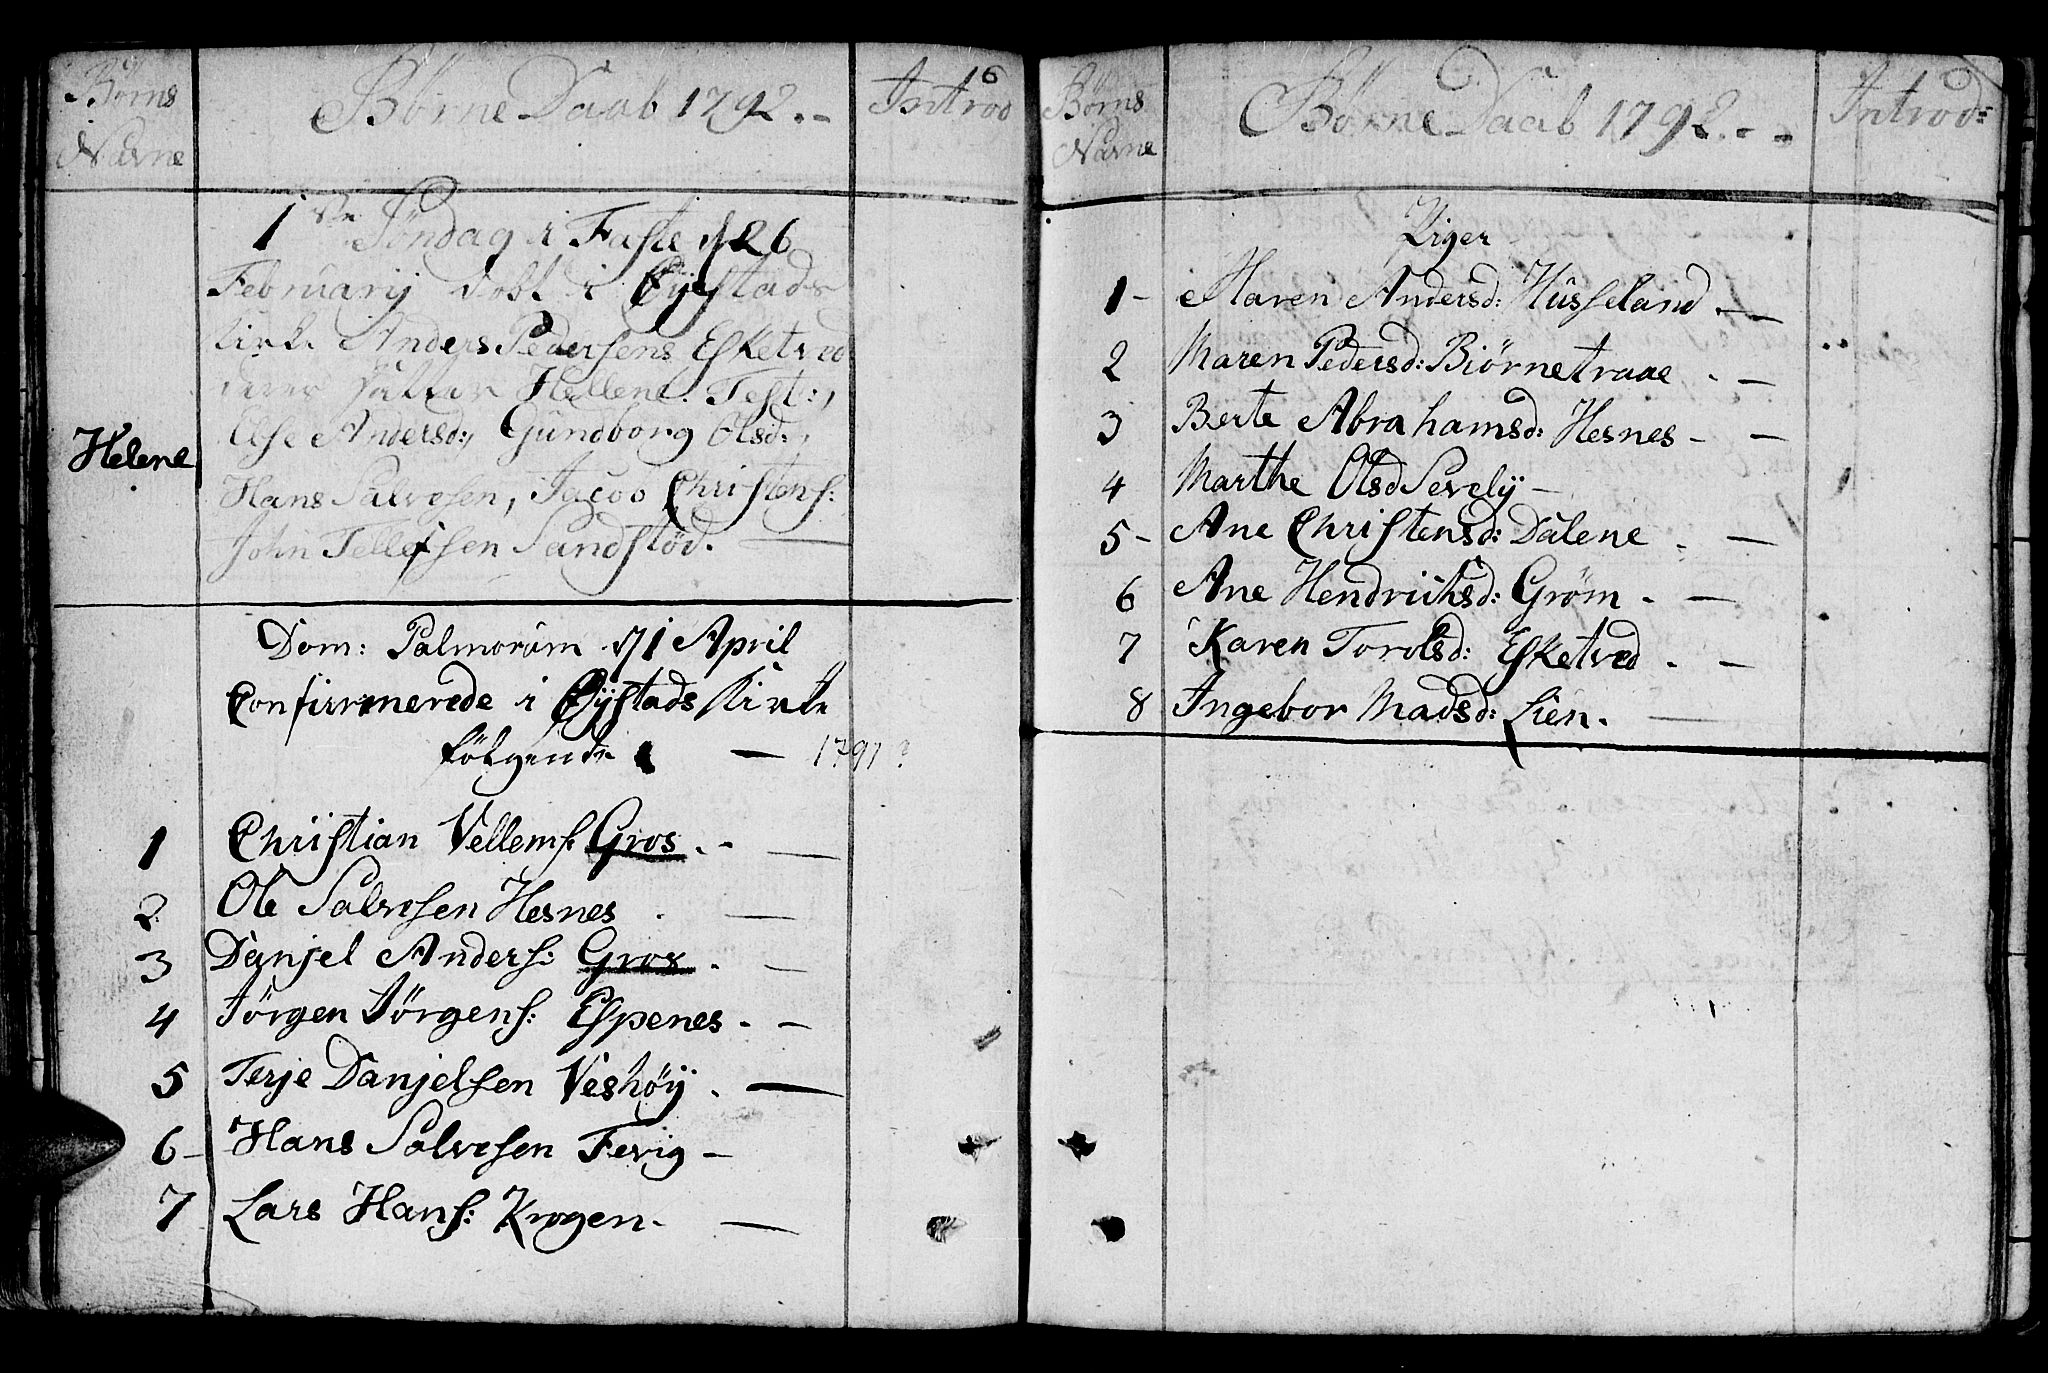 16
Börns Børne Daab 1792. Introd
Navne
1ste Söndag i Faste d 26
Februarij döbt i Øÿestads
kirke Anders Pedersens Esketved
deres Datter Hellene. Test:,
Else Andersd:, Gundborg Olsd:,
Helene
Hans Salvesen, Jacob Christens:
John Tellefsen Sandstöd.
Dom: Palmorum d 1 April
Confirmerede i Øÿstads Kirke
fölgende — 1791?
1 Christian Vellems: Gros. —
2 Ole Salvesen Hesnes. —
3 Danjel Anders: Gros. —
4 Jörgen Jörgens: Espenes. —
5 Terje Danjelsen Veshöÿ. —
6 Hans Salvesen Fevig —
7 Lars Hans: Krogen. —
Börns Børne Daab 1792. Introd:
Navne
Piger
1 - Maren Andersd: Hüsseland. —
2 Maren Pedersd: Biörnetraae. —
3 Berte Abrahamsd: Hesnes - —
4 Marthe Olsd Sevelÿ —
5 - Ane Christensd: Dalene. —
6 Ane Hendrichsd: Gröm. —
7 Karen Torolsd: Esketved. —
8 Ingebor Madsd: Lien. —